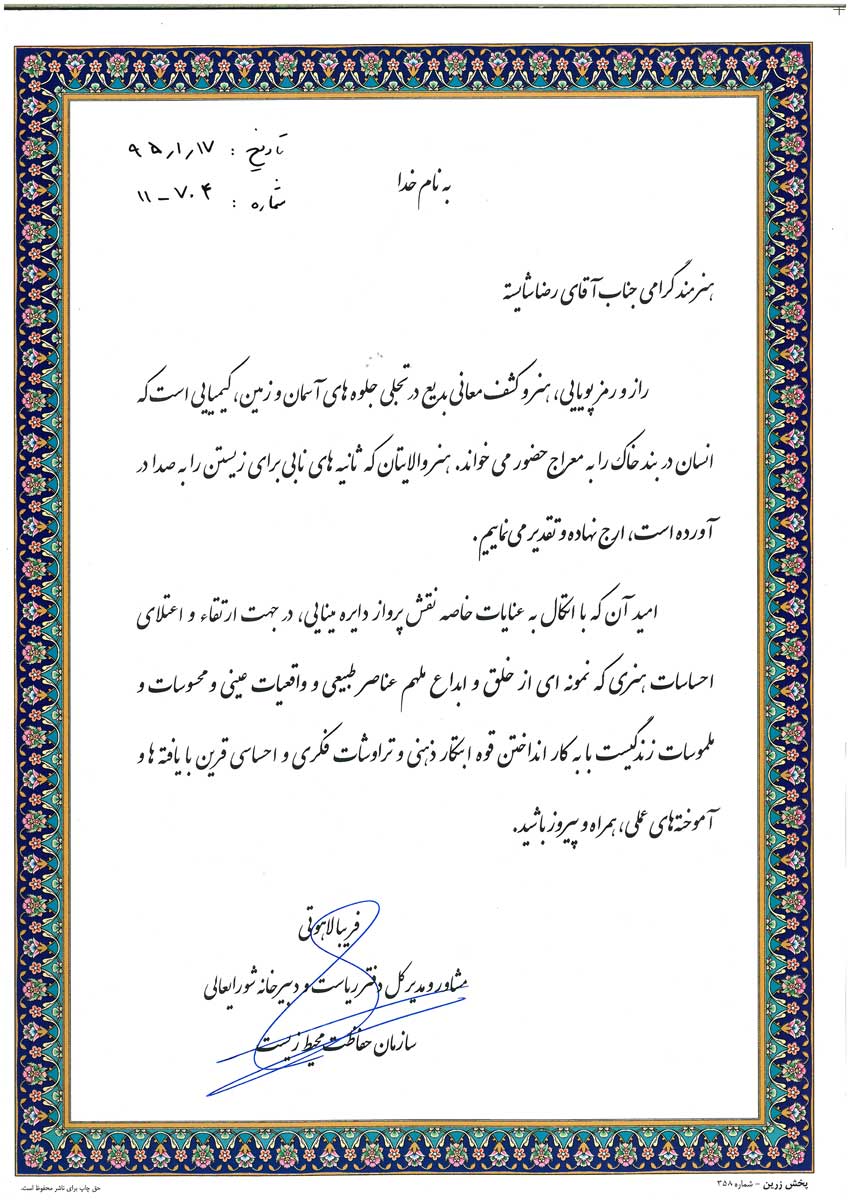 تاریخ : ۹۵/۱/۱۷
شماره : ۷۰۴ - ۱۱
به نام خدا
هنرمند گرامی جناب آقای رضا شایسته
راز و رمز پویایی، هنر و کشف معانی بدیع در تجلی جلوه های آسمان و زمین، کیمیایی است که
انسان در بند خاک را به معراج حضور می خواند. هنر والایتان که ثانیه های نابی برای زیستن را به صدا در
آورده است، ارج نهاده و تقدیر می نماییم.
امید آن که با اتکال به عنایات خاصه نقش پرواز دایره مینایی، در جهت ارتقاء و اعتلای
احساسات هنری که نمونه ای از خلق و ابداع ملهم عناصر طبیعی و واقعیات عینی و محسوسات و
ملموسات زندگیست با به کار انداختن قوه ابتکار ذهنی و تراوشات فکری و احساسی قرین با یافته ها و
آموخته های عملی، همراه و پیروز باشید.
فریبا لاهوتی
مشاور و مدیر کل دفتر ریاست و دبیرخانه شورایعالی
سازمان حفاظت محیط زیست
پخش زرین - شماره ۳۵۸
حق چاپ برای ناشر محفوظ است.